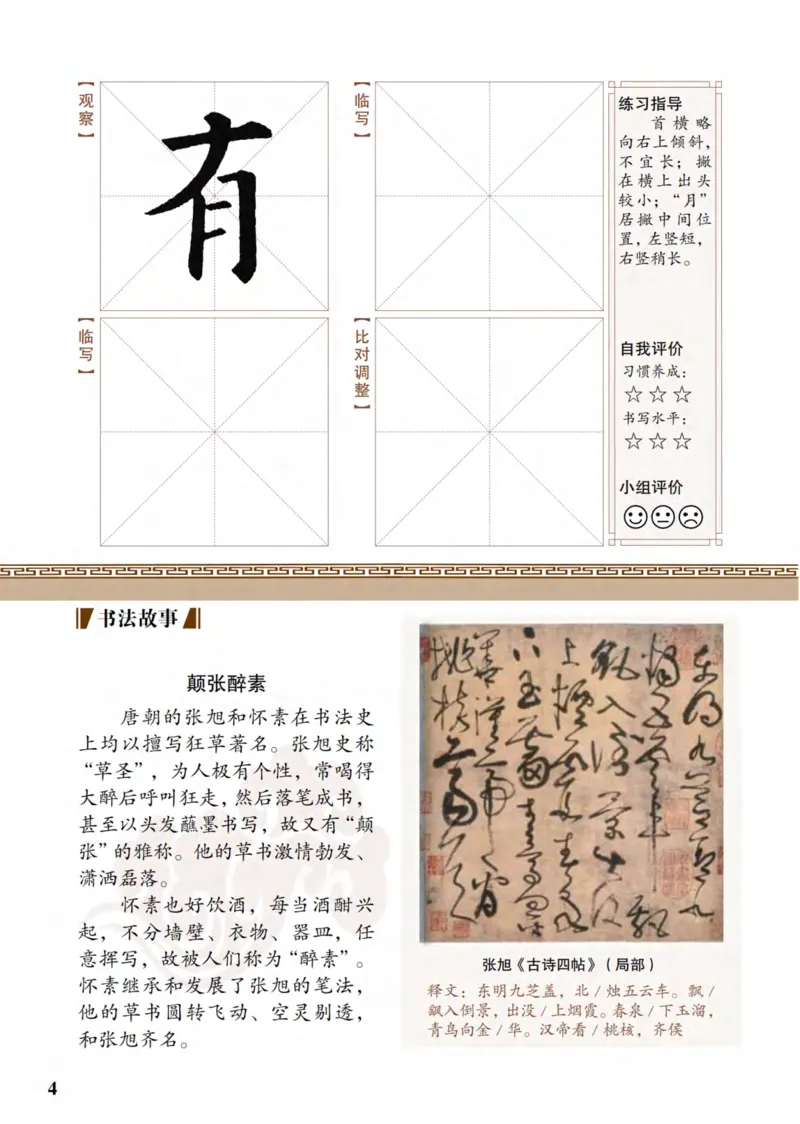 【观察】
有
【临写】
【临写】
【比对调整】
练习指导
首横略
向右上倾斜，
不宜长；撇
在横上出头
较小；“月”
居撇中间位
置，左竖短，
右竖稍长。
自我评价
习惯养成：
☆☆☆
书写水平：
☆☆☆
小组评价
书法故事
颠张醉素
唐朝的张旭和怀素在书法史
上均以擅写狂草著名。张旭史称
“草圣”，为人极有个性，常喝得
大醉后呼叫狂走，然后落笔成书，
甚至以头发蘸墨书写，故又有“颠
张”的雅称。他的草书激情勃发、
潇洒磊落。
怀素也好饮酒，每当酒酣兴
起，不分墙壁、衣物、器皿，任
意挥写，故被人们称为“醉素”。
怀素继承和发展了张旭的笔法，
他的草书圆转飞动、空灵剔透，
和张旭齐名。
张旭《古诗四帖》（局部）
释文：东明九芝盖，北/烛五云车。飘/
飖入倒景，出没/上烟霞。春泉/下玉溜，
青鸟向金/华。汉帝看/桃核，齐侯
4